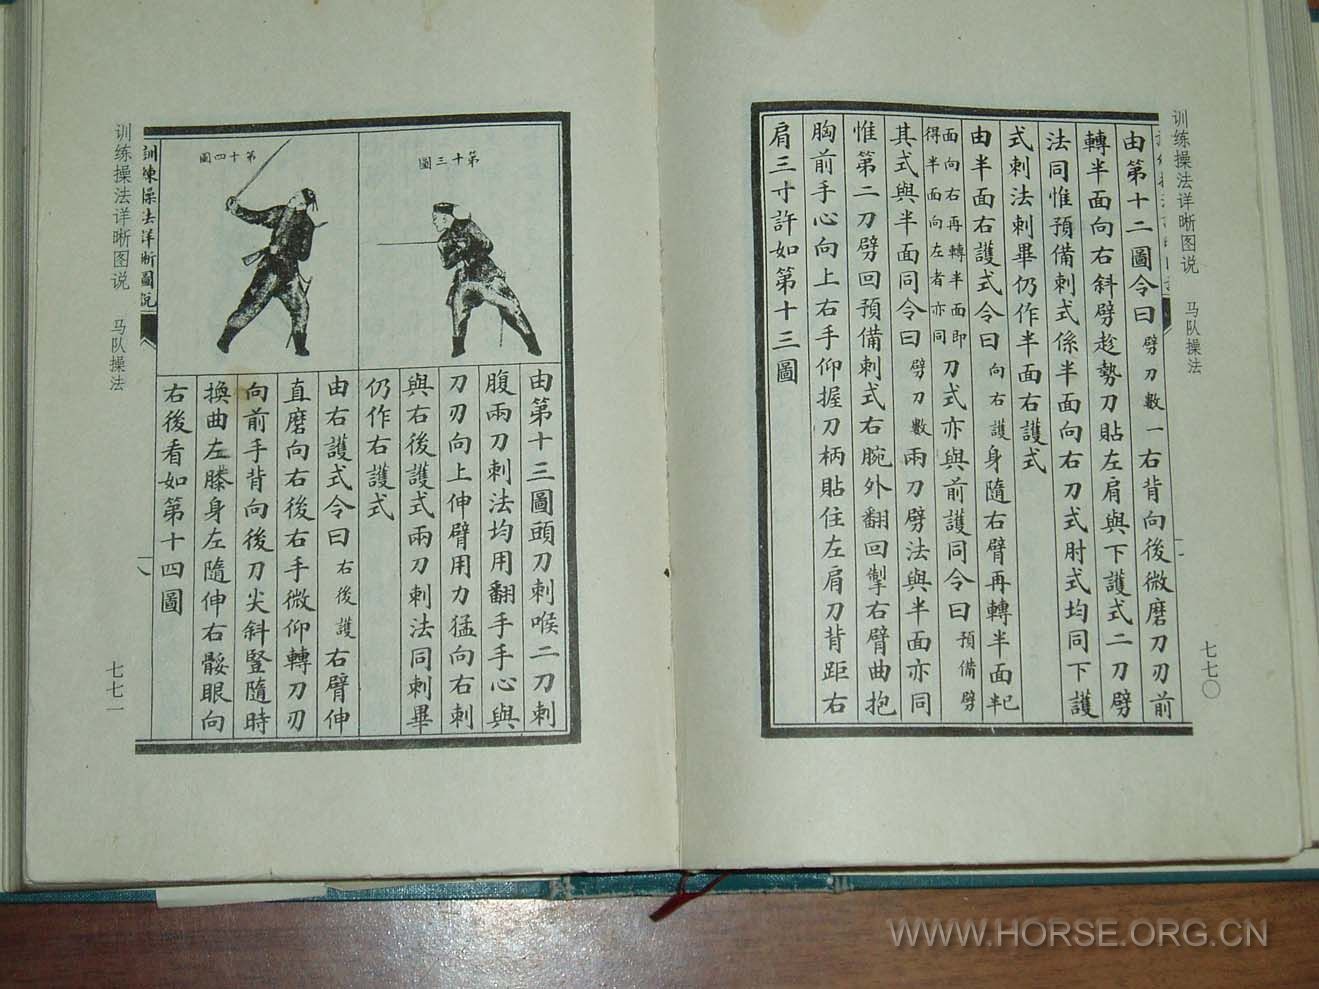 训练操法详晰图说 马队操法
七七〇
由第十二圖令曰劈刀數一右背向後微磨刀刃前
轉半面向右斜劈趁勢刀貼左肩與下護式二刀劈
法同惟預備刺式係半面向右刀式肘式均同下護
式刺法刺畢仍作半面右護式
由半面右護式令曰向右護身隨右臂再轉半面
面向右再轉半面即
得半面向左者亦同
刀式亦與前護同令曰預備劈
其式與半面同令曰劈刀數兩刀劈法與半面亦同
惟第二刀劈回預備刺式右腕外翻回掣右臂曲抱
胸前手心向上右手仰握刀柄貼住左肩刀背距右
肩三寸許如第十三圖
第十三圖
第十四圖
由第十三圖頭刀刺喉二刀刺
腹兩刀刺法均用翻手手心與
刀刃向上伸臂用力猛向右刺
與右後護式兩刀刺法同刺畢
仍作右護式
由右護式令曰右後護右臂伸
直磨向右後右手微仰轉刀刃
向前手背向後刀尖斜豎隨時
換曲左膝身左隨伸右骽眼向
右後看如第十四圖
訓練操法詳晰圖說
训练操法详晰图说 马队操法
七七一
WWW.HORSE.ORG.CN